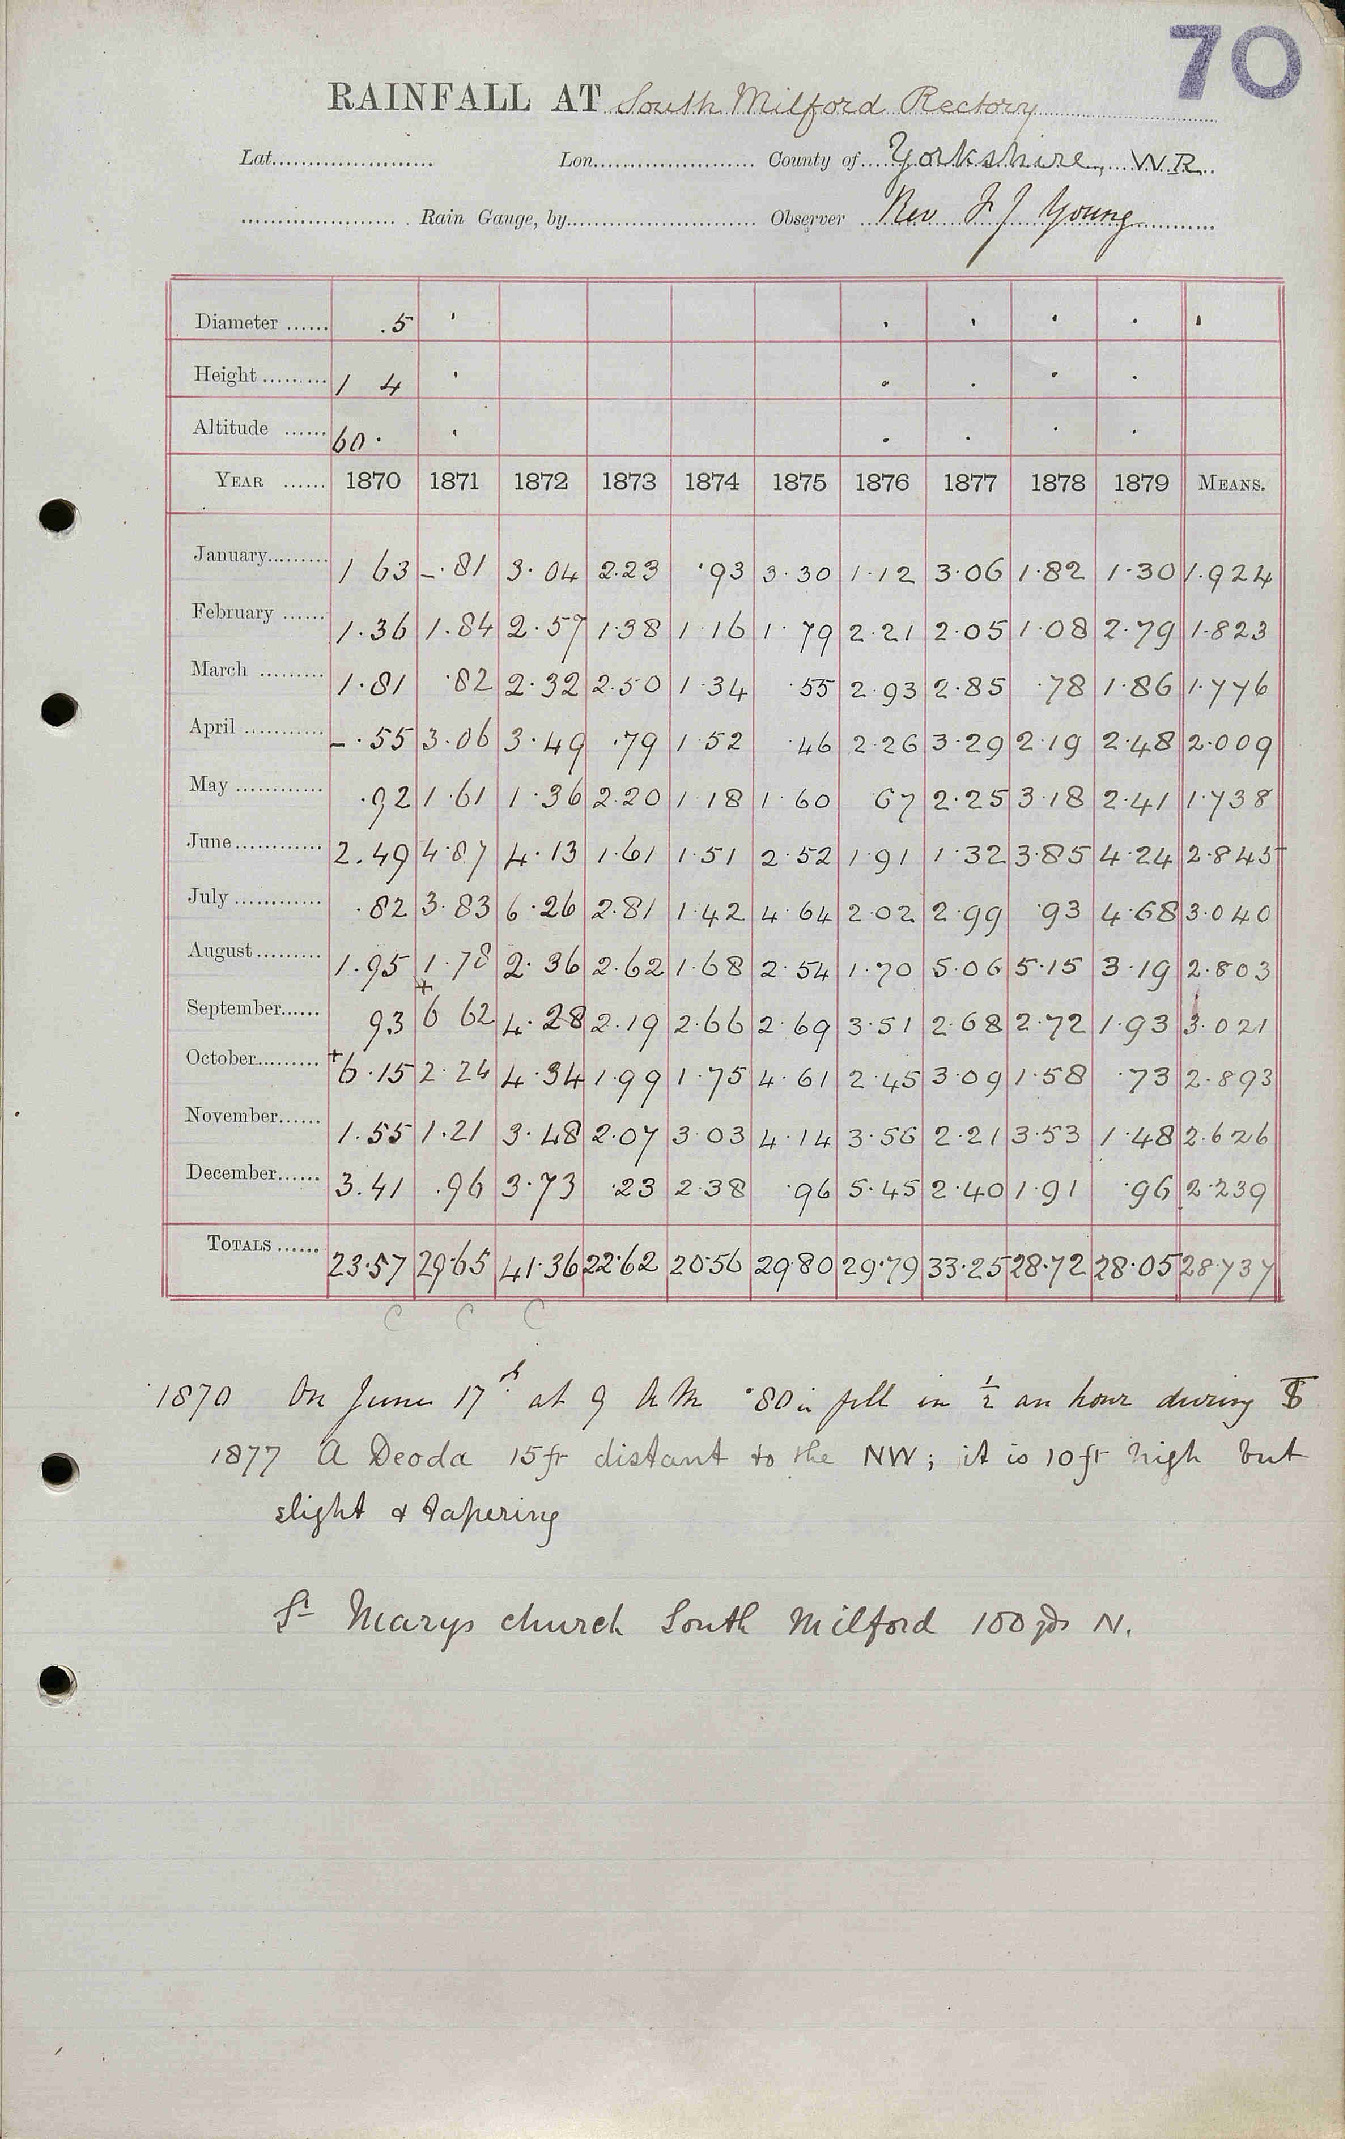 70
RAINFALL AT South Milford Rectory
Lat. Lon. County of Yorkshire, W.R.
Rain Gauge, by Observer Rev F J Young
Diameter .5 ' . . . . .
Height 1 4 . . . . .
Altitude 60 . . . . . .
YEAR 1870 1871 1872 1873 1874 1875 1876 1877 1878 1879 MEANS.
January 1 63 -.81 3.04 2.23 .93 3.30 1.12 3.06 1.82 1.30 1.924
February 1.36 1.84 2.57 1.38 1 16 1.79 2.21 2.05 1.08 2.79 1.823
March 1.81 .82 2.32 2.50 1 34 .55 2.93 2.85 .78 1.86 1.776
April -.55 3.06 3.49 .79 1 52 .46 2.26 3.29 2 19 2.48 2.009
May .92 1.61 1.36 2.20 1 18 1.60 67 2.25 3.18 2.41 1.738
June 2.49 4.87 4.13 1.61 1.51 2.52 1.91 1.32 3.85 4.24 2.845
July .82 3.83 6.26 2.81 1.42 4.64 2.02 2.99 .93 4.68 3.040
August 1.95 1.78 2.36 2.62 1.68 2.54 1.70 5.06 5.15 3.19 2.803
September 93 +6 62 4.28 2.19 2.66 2.69 3.51 2.68 2.72 1.93 3.021
October +6.15 2.24 4.34 1.99 1.75 4.61 2.45 3.09 1.58 .73 2.893
November 1.55 1.21 3.48 2.07 3.03 4.14 3.56 2.21 3.53 1.48 2.626
December 3.41 .96 3.73 .23 2.38 .96 5.45 2.40 1.91 .96 2.239
TOTALS 23.57 29.65 41.36 22.62 20.56 29.80 29.79 33.25 28.72 28.05 28.737
C C C
1870 On June 17th at 9 AM .80in fell in ½ an hour during
1877 A Deoda 15ft distant to the NW; it is 10ft high but
slight & tapering
St Marys church South Milford 100 yds N.